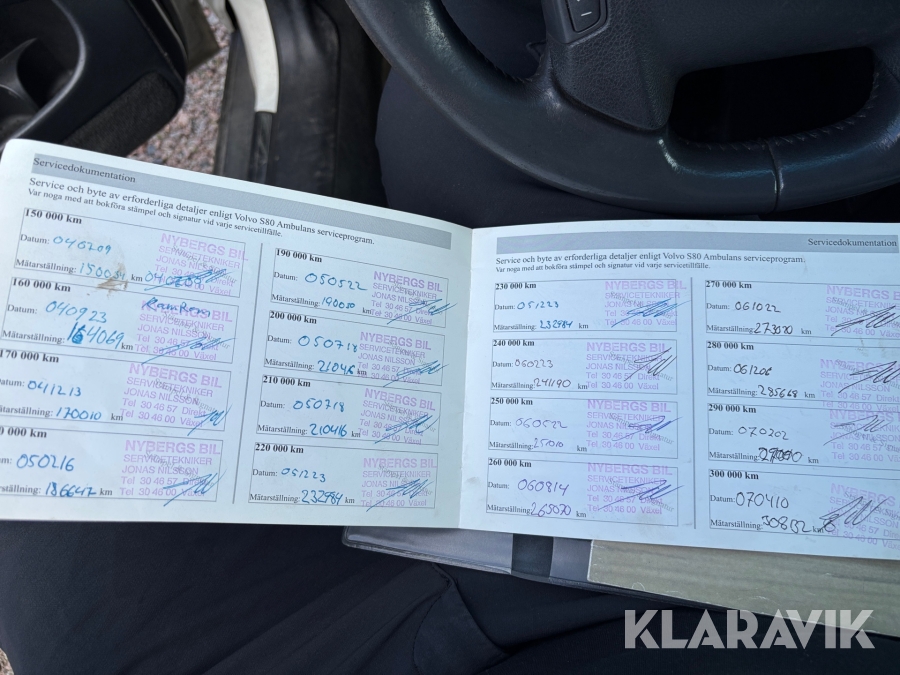 Servicedokumentation
Service och byte av erforderliga detaljer enligt Volvo S80 Ambulans serviceprogram.
Var noga med att bokföra stämpel och signatur vid varje servicetillfälle.
150 000 km
Datum: 040209
Mätarställning: 150031 km 040209
NYBERGS BIL
SERVICETEKNIKER
160 000 km
Datum: 040923
Mätarställning: 164069 km
SERVICETEKNIKER
JONAS NILSSON
Tel 30 46 57 Direkt
Tel 30 46 00 Växel
170 000 km
Datum: 041213
Mätarställning: 170010 km
NYBERGS BIL
SERVICETEKNIKER
JONAS NILSSON
Tel 30 46 57 Direkt
Tel 30 46 00 Växel
0 000 km
Datum: 050216
Mätarställning: 186647 km
NYBERGS BIL
SERVICETEKNIKER
JONAS NILSSON
Tel 30 46 57
Tel 30 46 00 Växel
190 000 km
Datum: 050522
Mätarställning: 190020 km
NYBERGS BIL
SERVICETEKNIKER
JONAS NILSSON
Tel 30 46 57
Tel 30 46 00 Växel
200 000 km
Datum: 050718
Mätarställning: km
NYBERGS BIL
SERVICETEKNIKER
JONAS NILSSON
Tel 30 46 57 Direkt
Tel 30 46 00 Växel
210 000 km
Datum: 050718
Mätarställning: 210416 km
NYBERGS BIL
SERVICETEKNIKER
JONAS NILSSON
Tel 30 46 57
Tel 30 46 00 Växel
220 000 km
Datum: 051223
Mätarställning: 232984 km
NYBERGS BIL
SERVICETEKNIKER
JONAS NILSSON
Tel 30 46 57
Tel 30 46 00 Växel
Servicedokumentation
Service och byte av erforderliga detaljer enligt Volvo S80 Ambulans serviceprogram.
Var noga med att bokföra stämpel och signatur vid varje servicetillfälle.
230 000 km
Datum: 051223
Mätarställning: 232984 km
NYBERGS BIL
SERVICETEKNIKER
JONAS NILSSON
Tel 30 46 57
Tel 30 46 00 Växel
240 000 km
Datum: 060223
Mätarställning: 241190 km
NYBERGS BIL
SERVICETEKNIKER
JONAS NILSSON
Tel 30 46 57
Tel 30 46 00 Växel
250 000 km
Datum: 060522
Mätarställning: km
NYBERGS BIL
SERVICETEKNIKER
JONAS NILSSON
Tel 30 46 57
Tel 30 46 00 Växel
260 000 km
Datum: 060814
Mätarställning: 265070 km
NYBERGS BIL
SERVICETEKNIKER
JONAS NILSSON
Tel 30 46 57
Tel 30 46 00 Växel
270 000 km
Datum: 061022
Mätarställning: km
NYBERGS
SERVICETEK
JONAS
Tel 30 46 57
Tel 30 46 00
280 000 km
Datum: 061206
Mätarställning: 285668 km
NYBERGS
JONAS
Tel 30 46 57
Tel 30 46 00
290 000 km
Datum: 070202
Mätarställning: km
NYBERGS
Tel 30 46 57
Tel 30 46 00
300 000 km
Datum: 070410
Mätarställning: 308132 km
NYBERGS
Tel 30 46 00
KLARAVIK